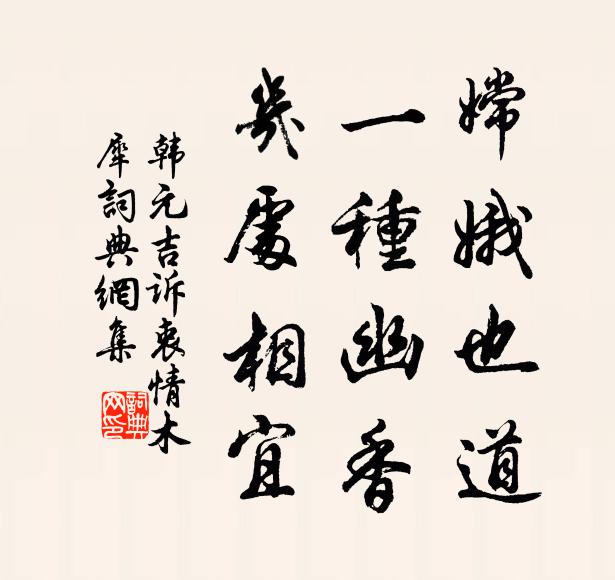 嫦娥也道
一種幽香
幾處相宜
韩元吉诉衷情木
犀詞典網集
詞典
网印